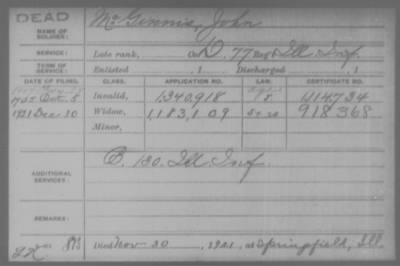 DEAD
NAME OF SOLDIER:
McGinnis, John
SERVICE:
Late rank, Co. D, 77 Reg't Ill Inf.
TERM OF SERVICE:
Enlisted , 1 Discharged , 1
DATE OF FILING. CLASS. APPLICATION NO. LAW. CERTIFICATE NO.
Oct. 5 Invalid, 1,340,918 1114734
1921 Dec 10 Widow, 1,183,109 918368
Minor,
ADDITIONAL SERVICES:
C. 130. Ill Inf.
REMARKS:
Died Nov 30, 1921, at Springfield, Ill.